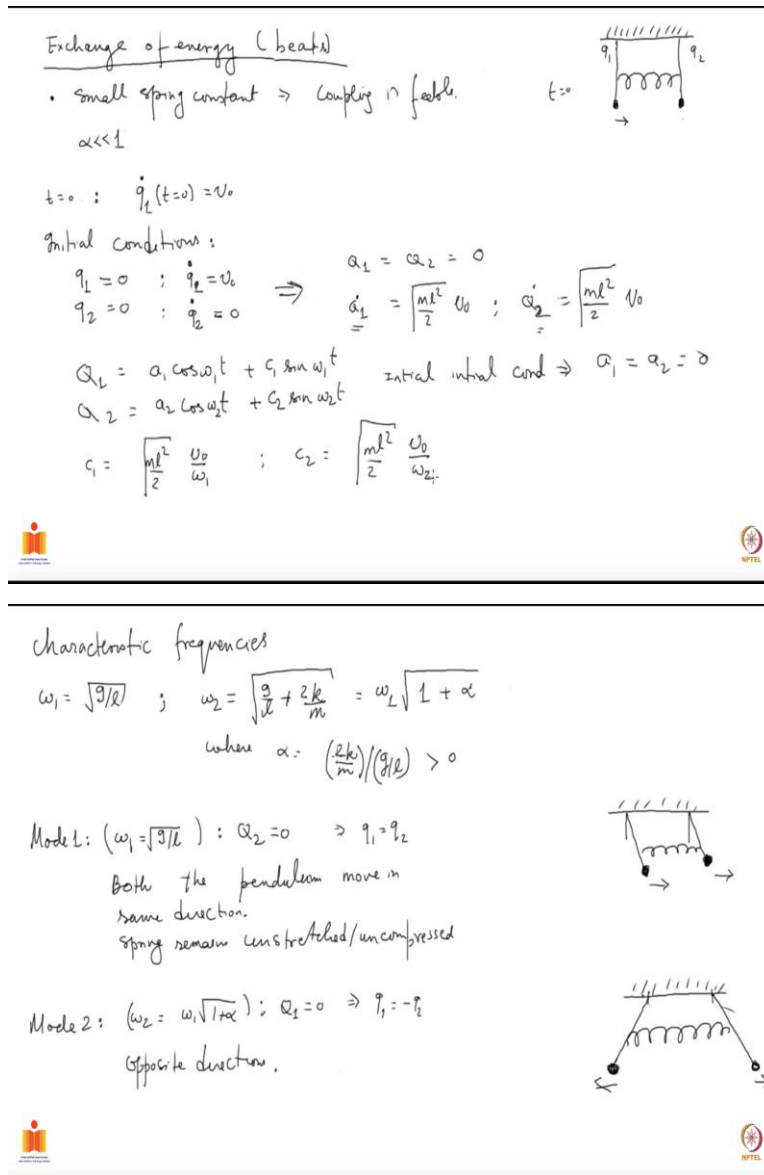 Exchange of energy (beats)
• Small spring constant ⇒ Coupling is feeble.
α<<1
t=0
q₁ q₂
t=0 : q̇₁(t=0) = v₀
Initial conditions :
q₁ = 0 ; q̇₁ = v₀
q₂ = 0 : q̇₂ = 0
⇒ Q₁ = Q₂ = 0
Q̇₁ = √(ml²/2) v₀ ; Q̇₂ = √(ml²/2) v₀
Q₁ = a₁ cosω₁t + c₁ sin ω₁t
Q₂ = a₂ cosω₂t + c₂ sin ω₂t
Intial intial cond ⇒ a₁ = a₂ = 0
c₁ = √(ml²/2) v₀/ω₁ ; c₂ = √(ml²/2) v₀/ω₂
NPTEL
Characteristic frequencies
ω₁ = √(g/l) ; ω₂ = √(g/l + 2k/m) = ω₁ √(1 + α)
where α = (2k/m)/(g/l) > 0
Mode 1: (ω₁ = √(g/l)) : Q₂=0 ⇒ q₁=q₂
Both the pendulum move in
same direction.
Spring remain unstretched/uncompressed
Mode 2: (ω₂ = ω₁√(1+α)) ; Q₁=0 ⇒ q₁=-q₂
Opposite direction.
NPTEL